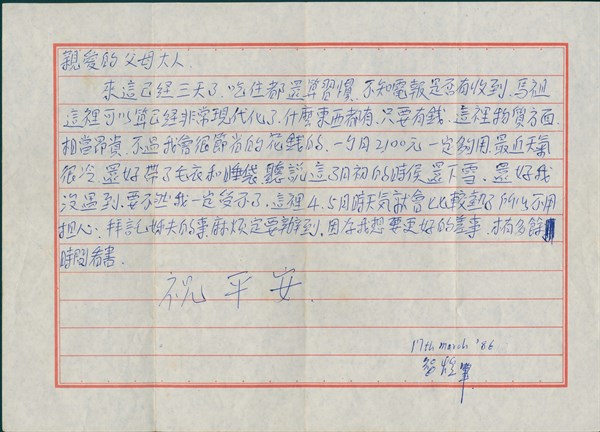 親愛的父母大人
來這已經三天了，吃住都還算習慣，不知電報是否有收到，馬祖
這裡可以算已經非常現代化了，什麼東西都有，只要有錢。這裡物質方面
相當昂貴，不過我會很節省的花錢的。一個月2,100元一定夠用，最近天氣
很冷，還好帶了毛衣和睡袋，聽說這3月初的時候還下雪。還好我
沒遇到，要不然我一定受不了。這裡4.5月時天氣就會比較熱了，所以不用
担心。拜託 的事麻煩定要辦到，因在我想要更好的 事，才有多餘
時間看書。
祝 平 安
17th march '86
筆